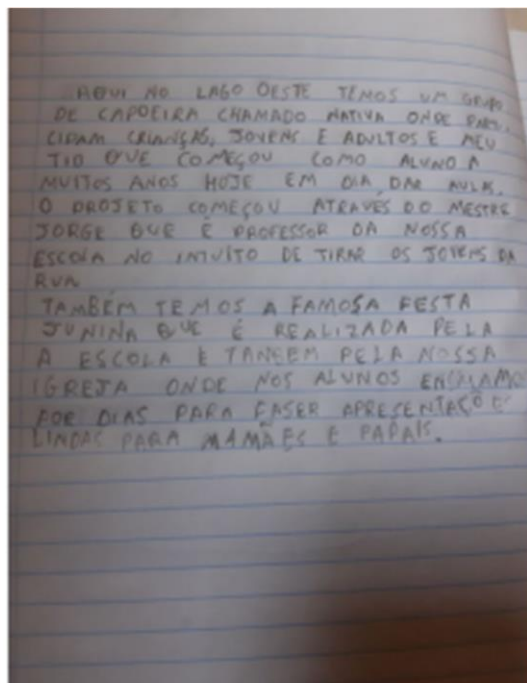 AQUI NO LAGO OESTE TEMOS UM GRUPO
DE CAPOEIRA CHAMADO NATIVA ONDE PARTI
CIPAM CRIANÇAS, JOVENS E ADULTOS E MEU
TIO QUE COMEÇOU COMO ALUNO A
MUITOS ANOS HOJE EM DIA, DAR AULAS.
O PROJETO COMEÇOU ATRAVÉS DO MESTRE
JORGE QUE É PROFESSOR DA NOSSA
ESCOLA NO INTUÍTO DE TIRAR OS JOVENS DA
RUA
TAMBÉM TEMOS A FAMOSA FESTA
JUNINA QUE É REALIZADA PELA
A ESCOLA E TANBEM PELA NOSSA
IGREJA ONDE NOS ALUNOS ENSAIAMOS
POR DIAS PARA FASER APRESENTAÇÕES
LINDAS PARA MAMÃES E PAPAIS.